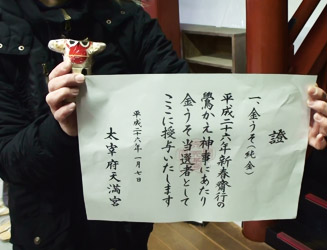 證
一、金うそ(純金)
平成二十六年新春齋行の
鷽かえ神事にあたり
金うそ当選者として
ここに授与いたします
平成二十六年一月七日
太宰府天満宮